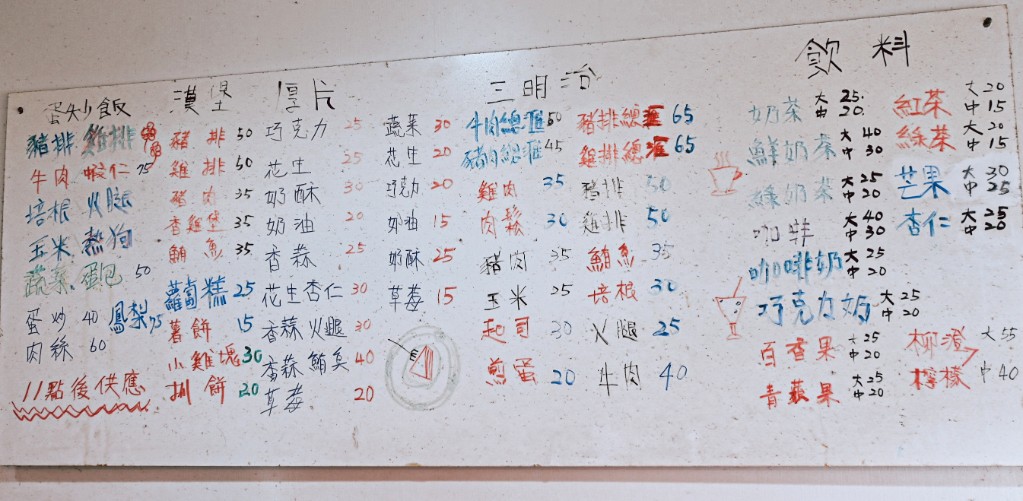 蛋炒飯
豬排 雞排
牛肉 蝦仁 75
培根 火腿
玉米 熱狗
蔬菜 蛋包 50
蛋炒 40 鳳梨 75
肉絲 60
11點後供應
漢堡
豬排 50
雞排 50
豬肉 35
香雞堡 35
鮪魚 35
蘿蔔糕 25
薯餅 15
小雞塊 30
捌餅 20
厚片
巧克力 25
花生 25
奶酥 30
奶油 20
香蒜 25
花生杏仁 30
香蒜火腿 30
香蒜鮪魚 40
草莓 20
蔬菜 30
花生 20
巧克力 20
奶油 15
奶酥 25
草莓 15
三明治
牛肉總匯 50
豬肉總匯 45
雞肉 35
肉鬆 30
豬肉 35
玉米 25
起司 30
煎蛋 20
豬排總匯 65
雞排總匯 65
豬排 50
雞排 50
鮪魚 35
培根 30
火腿 25
牛肉 40
飲料
奶茶 大 25 中 20
鮮奶茶 大 40 中 30
綠奶茶 大 25 中 20
咖啡 大 40 中 30
咖啡奶 大 25 中 20
巧克力奶 大 25 中 20
百香果 大 25 中 20
青蘋果 大 25 中 20
紅茶 大 20 中 15
綠茶 大 20 中 15
芒果 大 30 中 25
杏仁 大 25 中 20
柳澄 大 55
檸檬 中 40